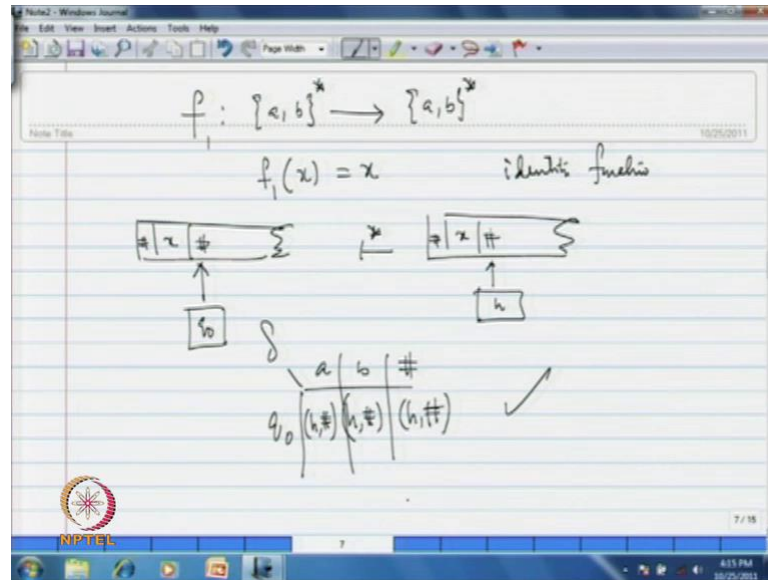 Note2 - Windows Journal
File Edit View Insert Actions Tools Help
Page Width
f₁ : {a, b}* ⟶ {a, b}*
Note Title
10/25/2011
f₁(x) = x identity function
# | x | # ⊢* # | x | #
q₀ h
δ | a | b | #
q₀ | (h,#) | (h,#) | (h,#) ✓
7/15
NPTEL
7
4:15 PM
10/25/2011